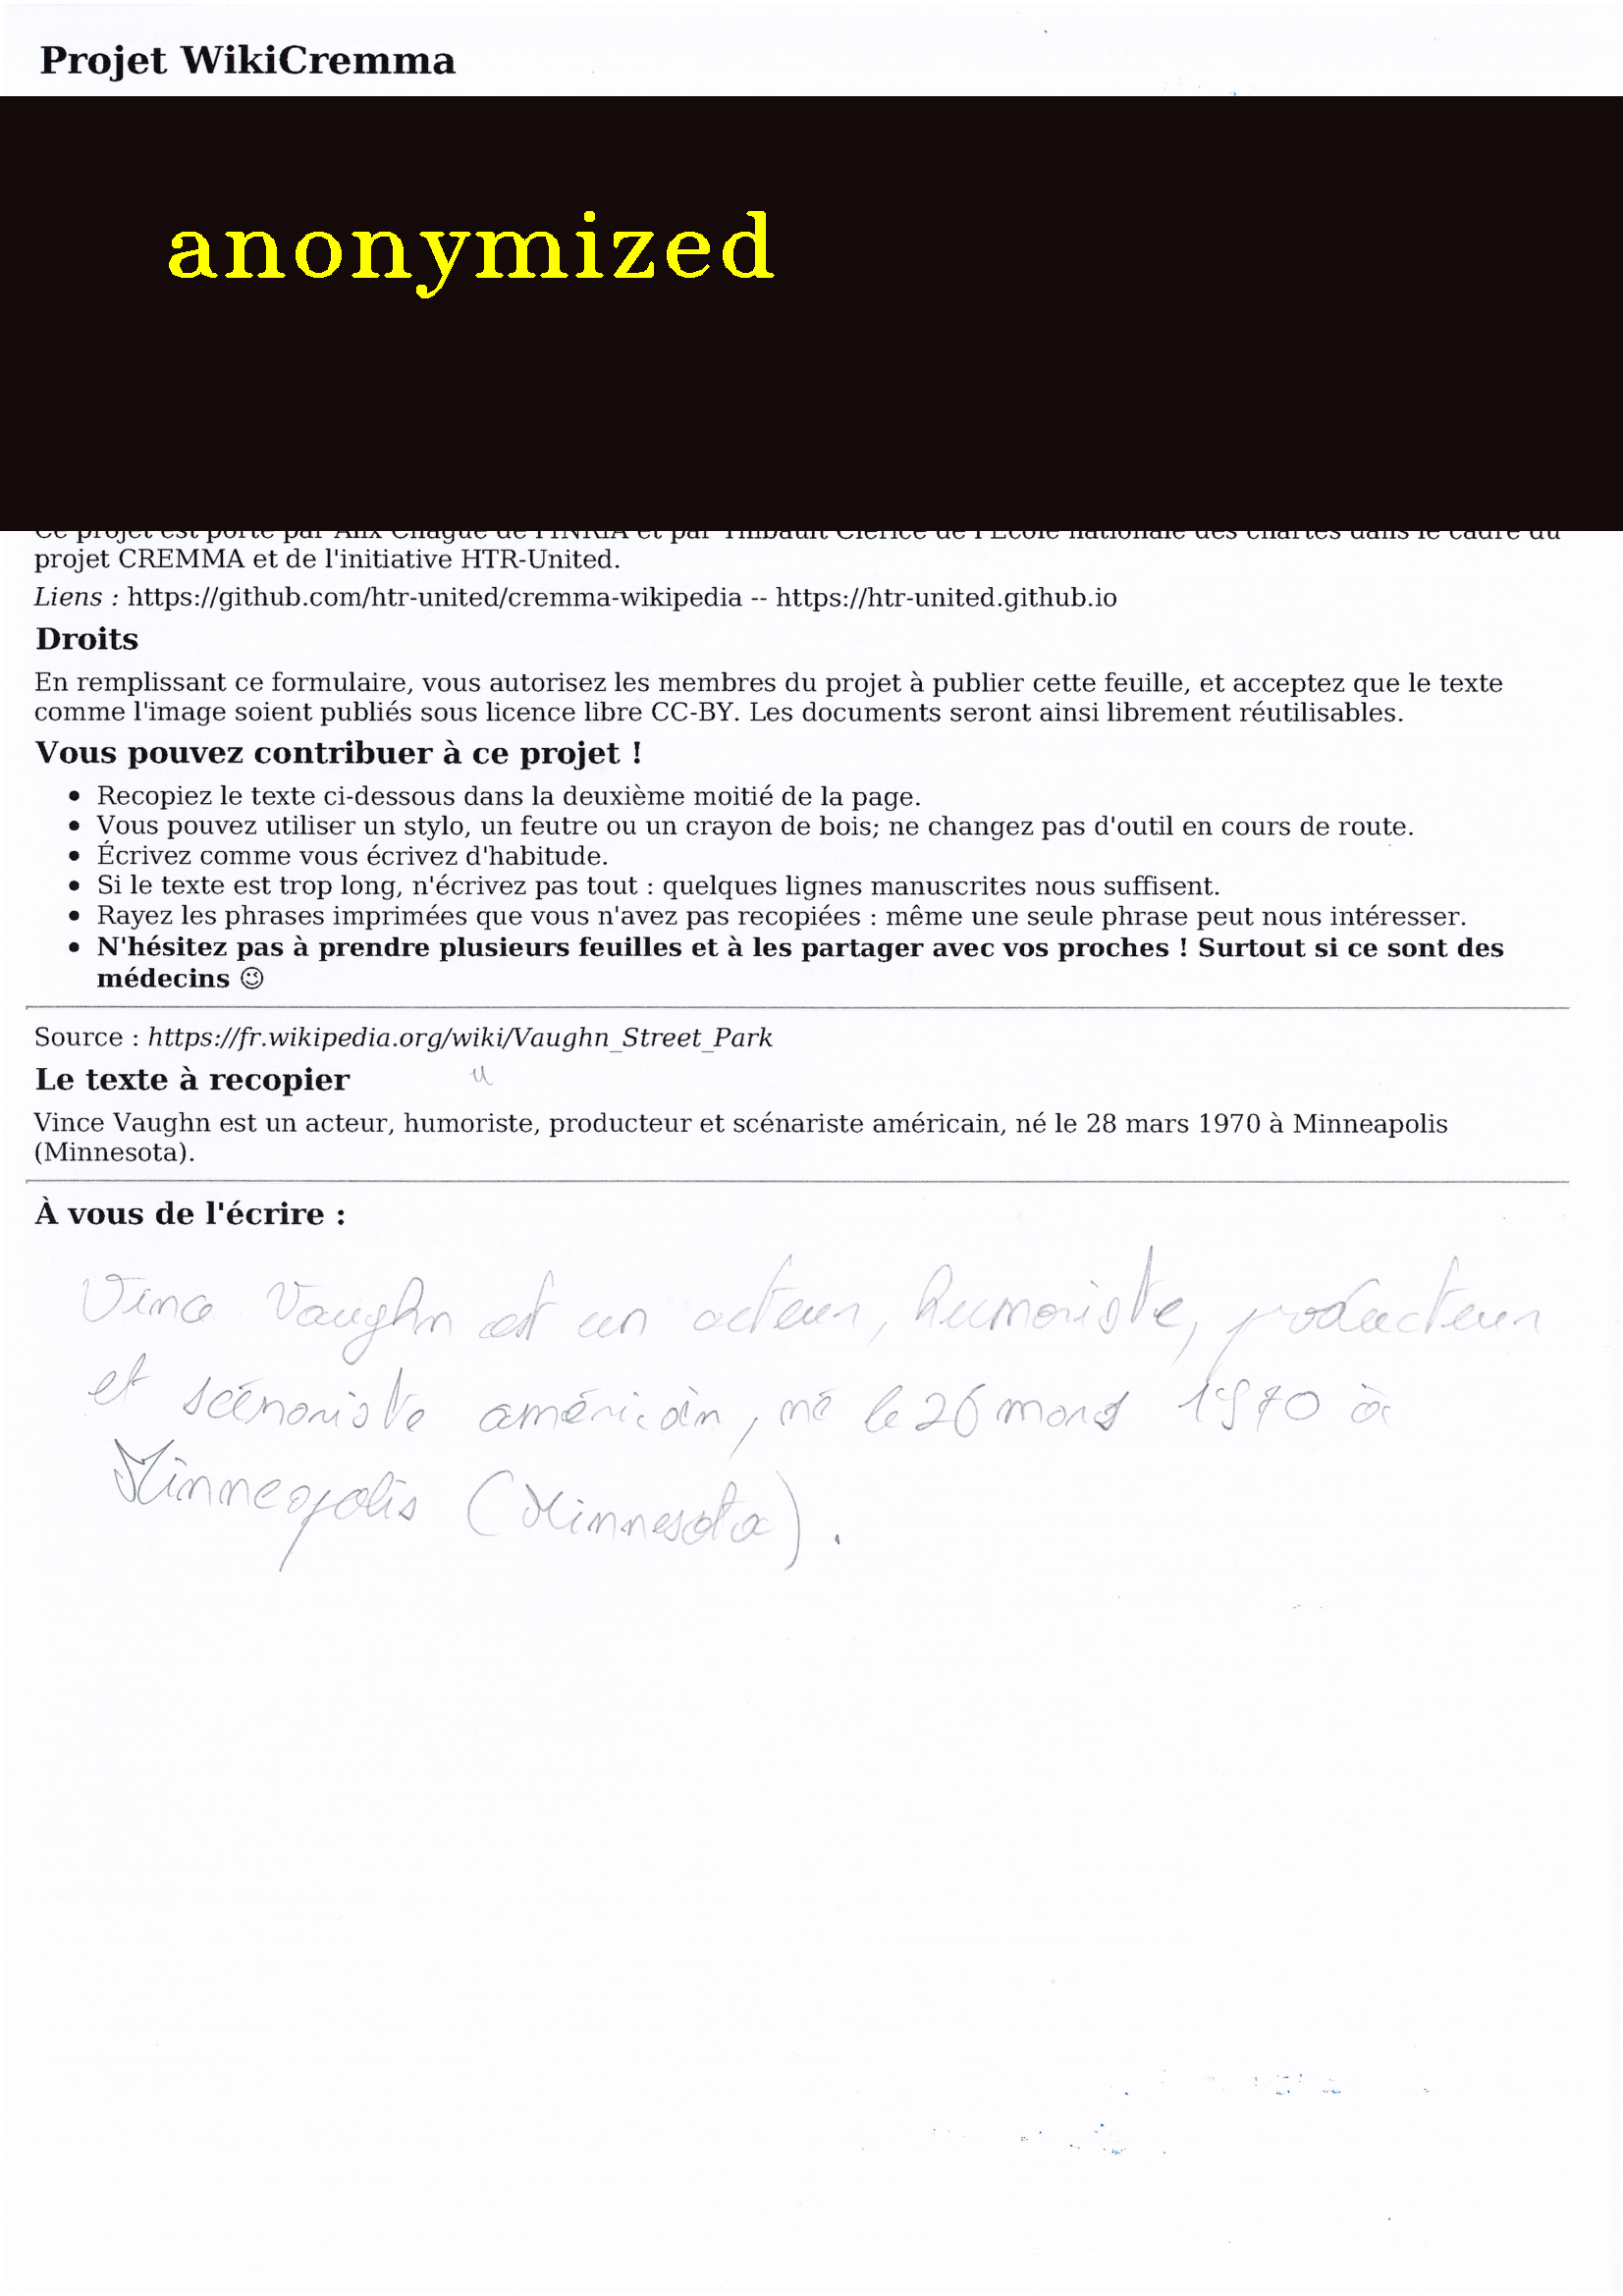 Projet WikiCremma
anonymized
Ce projet est porté par Alix Chagué de l'INRIA et par Thibault Clérice de l'École nationale des chartes dans le cadre du
projet CREMMA et de l'initiative HTR-United.
Liens : https://github.com/htr-united/cremma-wikipedia -- https://htr-united.github.io
Droits
En remplissant ce formulaire, vous autorisez les membres du projet à publier cette feuille, et acceptez que le texte
comme l'image soient publiés sous licence libre CC-BY. Les documents seront ainsi librement réutilisables.
Vous pouvez contribuer à ce projet !
• Recopiez le texte ci-dessous dans la deuxième moitié de la page.
• Vous pouvez utiliser un stylo, un feutre ou un crayon de bois; ne changez pas d'outil en cours de route.
• Écrivez comme vous écrivez d'habitude.
• Si le texte est trop long, n'écrivez pas tout : quelques lignes manuscrites nous suffisent.
• Rayez les phrases imprimées que vous n'avez pas recopiées : même une seule phrase peut nous intéresser.
• N'hésitez pas à prendre plusieurs feuilles et à les partager avec vos proches ! Surtout si ce sont des
médecins 😉
Source : https://fr.wikipedia.org/wiki/Vaughn_Street_Park
Le texte à recopier u
Vince Vaughn est un acteur, humoriste, producteur et scénariste américain, né le 28 mars 1970 à Minneapolis
(Minnesota).
À vous de l'écrire :
Vince Vaughn est un acteur, humoriste, producteur
et scénariste américain, né le 26 mars 1970 à
Minneapolis (Minnesota).